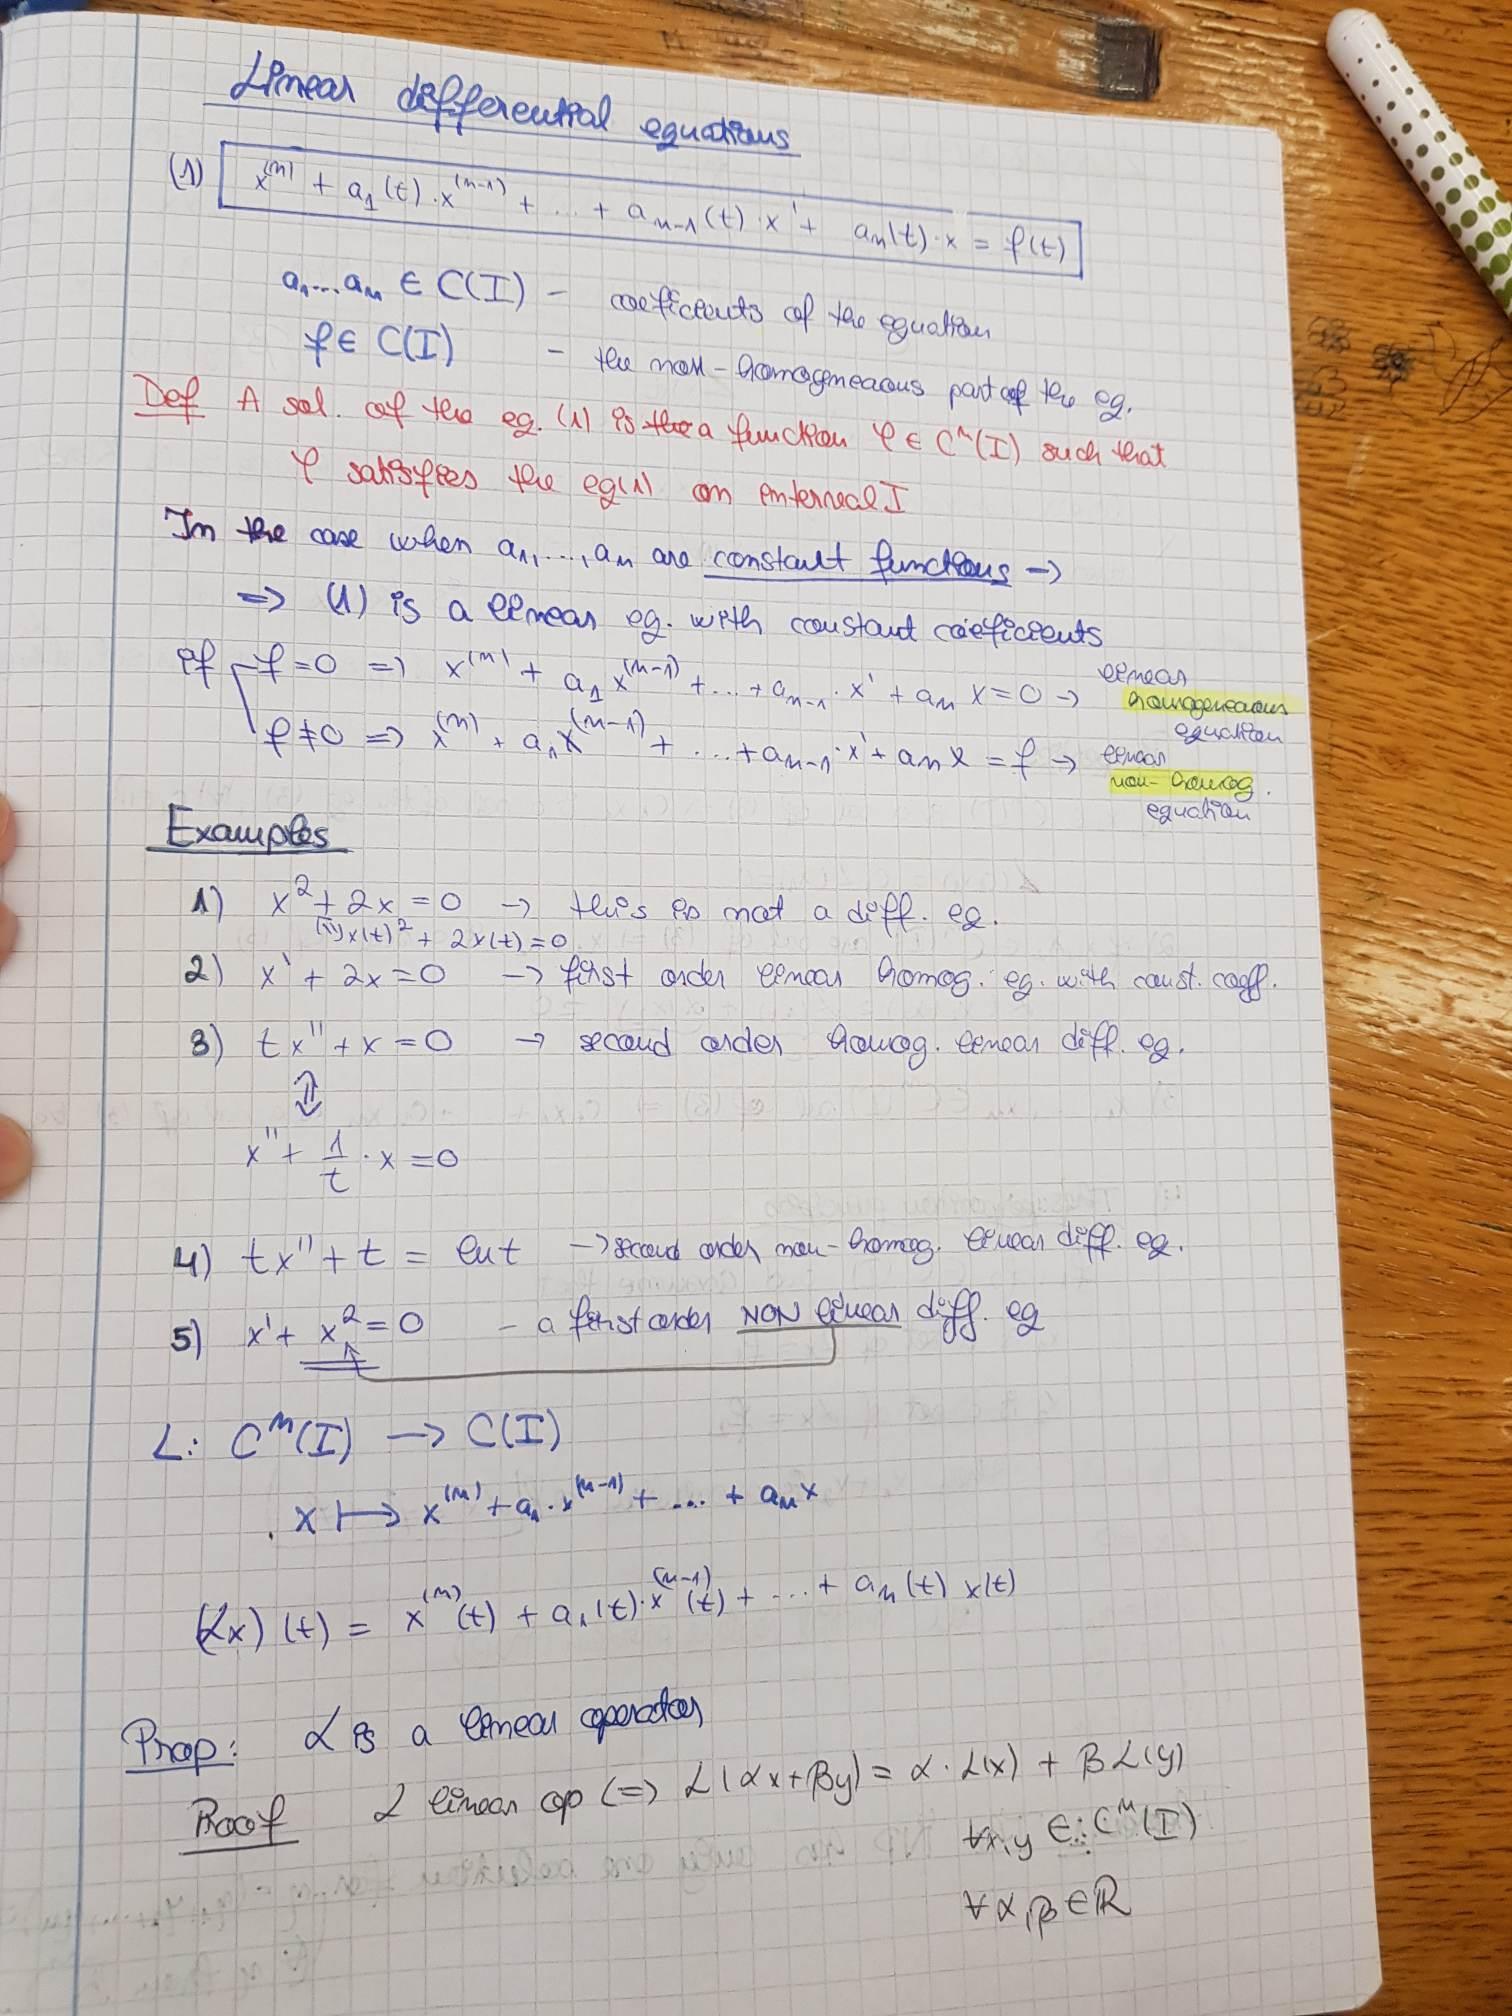 Linear differential equations
(1) x^(n) + a_1(t)·x^(n-1) + ... + a_{n-1}(t)·x' + a_n(t)·x = f(t)
a_1...a_n ∈ C(I) - coefficients of the equation
f ∈ C(I) - the non-homogneaous part of the eq.
Def A sol. of the eq. (1) is the a function φ ∈ C^n(I) such that
φ satisfies the eq(1) on interval I
In the case when a_1, ..., a_n are constant functions →
=> (1) is a linear eq. with constant coeficients
if f=0 => x^(n) + a_1 x^(n-1) + ... + a_{n-1}·x' + a_n x = 0 → linear homogeneaous equation
f≠0 => x^(n) + a_1 x^(n-1) + ... + a_{n-1}·x' + a_n x = f → linear non-homog. equation
Examples
1) x^2 + 2x = 0 → this is not a diff. eq.
x(t)^2 + 2x(t) = 0
2) x' + 2x = 0 → first order linear homog. eq. with const. coeff.
3) tx'' + x = 0 → second order homog. linear diff. eq.
⇕
x'' + 1/t · x = 0
4) tx'' + t = ln t → second order non-homog. linear diff. eq.
5) x' + x^2 = 0 - a first order NON linear diff. eq
L: C^n(I) → C(I)
x ↦ x^(n) + a_1·x^(n-1) + ... + a_n x
(Lx)(t) = x^(n)(t) + a_1(t)·x^(n-1)(t) + ... + a_n(t) x(t)
Prop: L is a linear operator
Proof L linear op <=> L(αx+βy) = α·L(x) + βL(y)
∀x,y ∈ C^n(I)
∀α,β ∈ ℝ